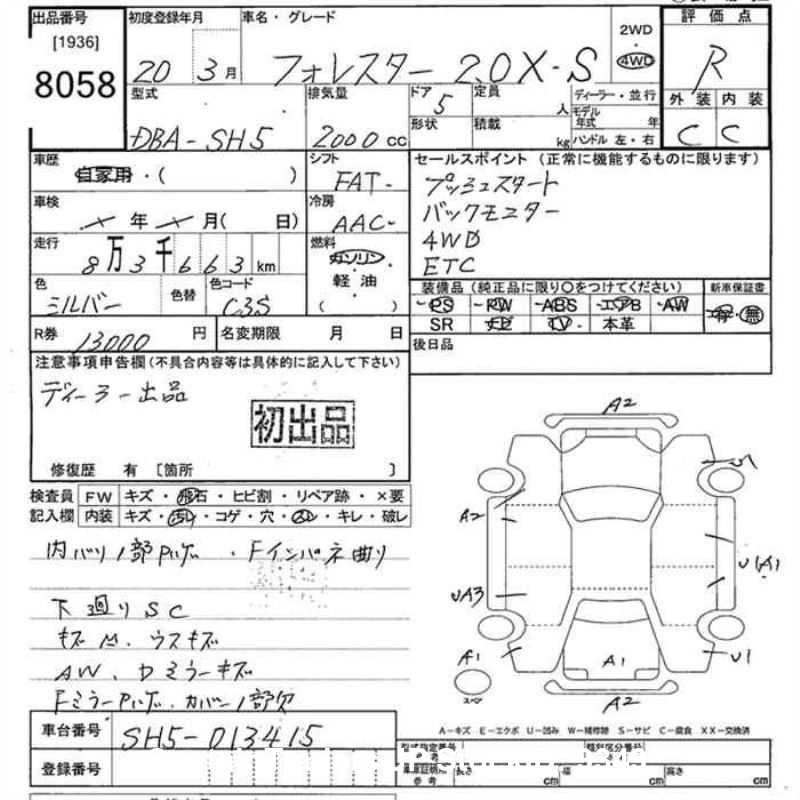 出品番号 初度登録年月 車名・グレード 2WD ・ 4WD 評価点
[1936]
8058 20 3月 フォレスター 2.0X-S R
型式 排気量 ドア 5 定員 人 ディーラー・並行 外装 内装
DBA-SH5 2000cc 形状 積載 kg モデル年式 年 ハンドル 左・右 C C
車歴 自家用・( ) シフト FAT セールスポイント(正常に機能するものに限ります)
車検 年 月( 日) 冷房 AAC プッシュスタート
バックモニター
走行 8万3千663km 燃料 ガソリン・軽油・( ) 4WD
ETC
色 シルバー 色替 色コード C3S 装備品(純正品に限り○をつけてください) 新車保証書
PS PW ABS エアB AW 有・無
SR TV 本革
R券 13000円 名変期限 月 日 後日品
注意事項申告欄(不具合内容等は具体的に記入して下さい)
ディーラー出品
初出品
修復歴 有 〔箇所 〕
検査員 FW キズ・飛石・ヒビ割・リペア跡・×要
記入欄 内装 キズ・汚レ・コゲ・穴・スレ・キレ・破レ
下廻りSC
キズ ウスキズ
A2
A2
UA3
A1
スペア
A1
A2
U1
A-キズ E-エクボ U-凹み W-補修跡 S-サビ C-腐食 XX-交換済
車台番号 SH5-013415
型式指定番号 類別区分番号
登録番号
車庫証明用参考 長さ cm 幅 cm 高さ cm